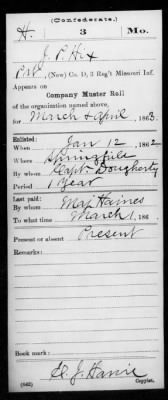 (Confederate.)
H. 3 Mo.
J. P. Hix
Pvt, (New) Co. D, 3 Reg't Missouri Inf.
Appears on
Company Muster Roll
of the organization named above,
for March & April, 1863.
Enlisted:
When Jan 12, 1862
Where Springfield
By whom Capt. Dougherty
Period 1 Year
Last paid:
By whom Maj Haines
To what time March 1, 186
Present or absent Present
Remarks:
Book mark:
(642) Copyist.